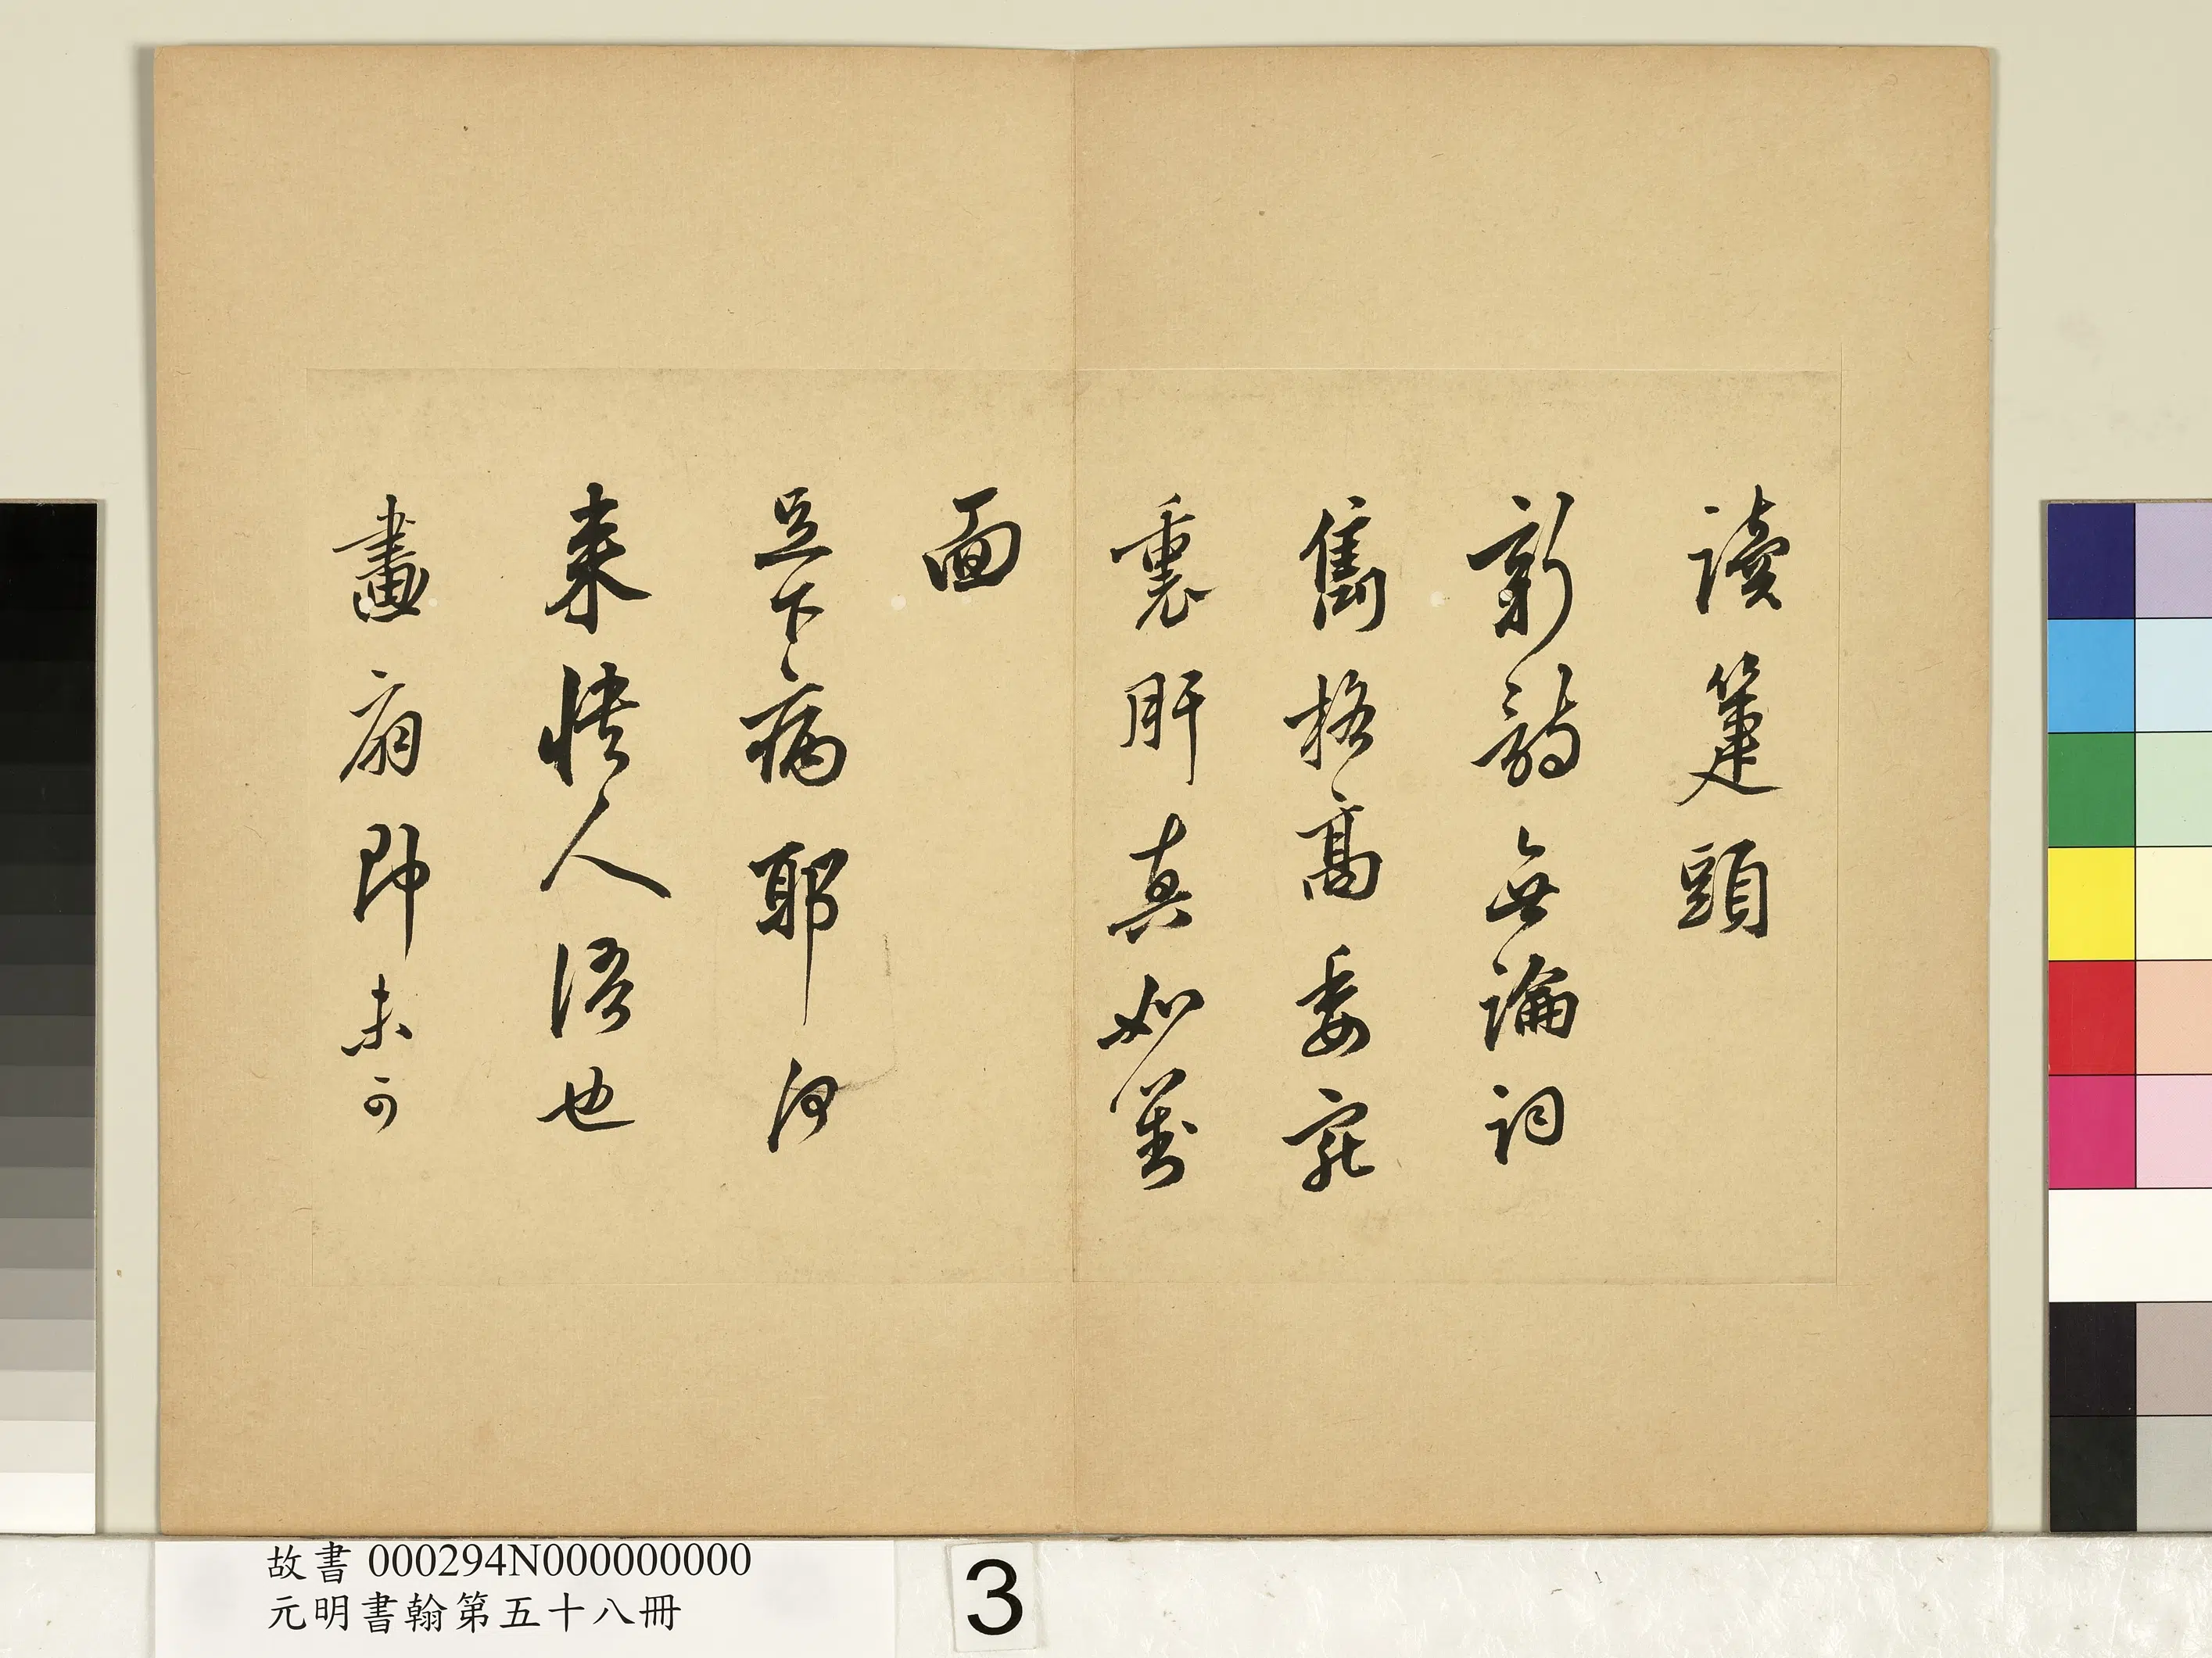 讀箑頭
新韵無論詞
雋格高委宛
裏肝真如萬
面
足下病耶何
來情人語也
畫扇即未可
故書 000294N000000000
元明書翰第五十八冊
3